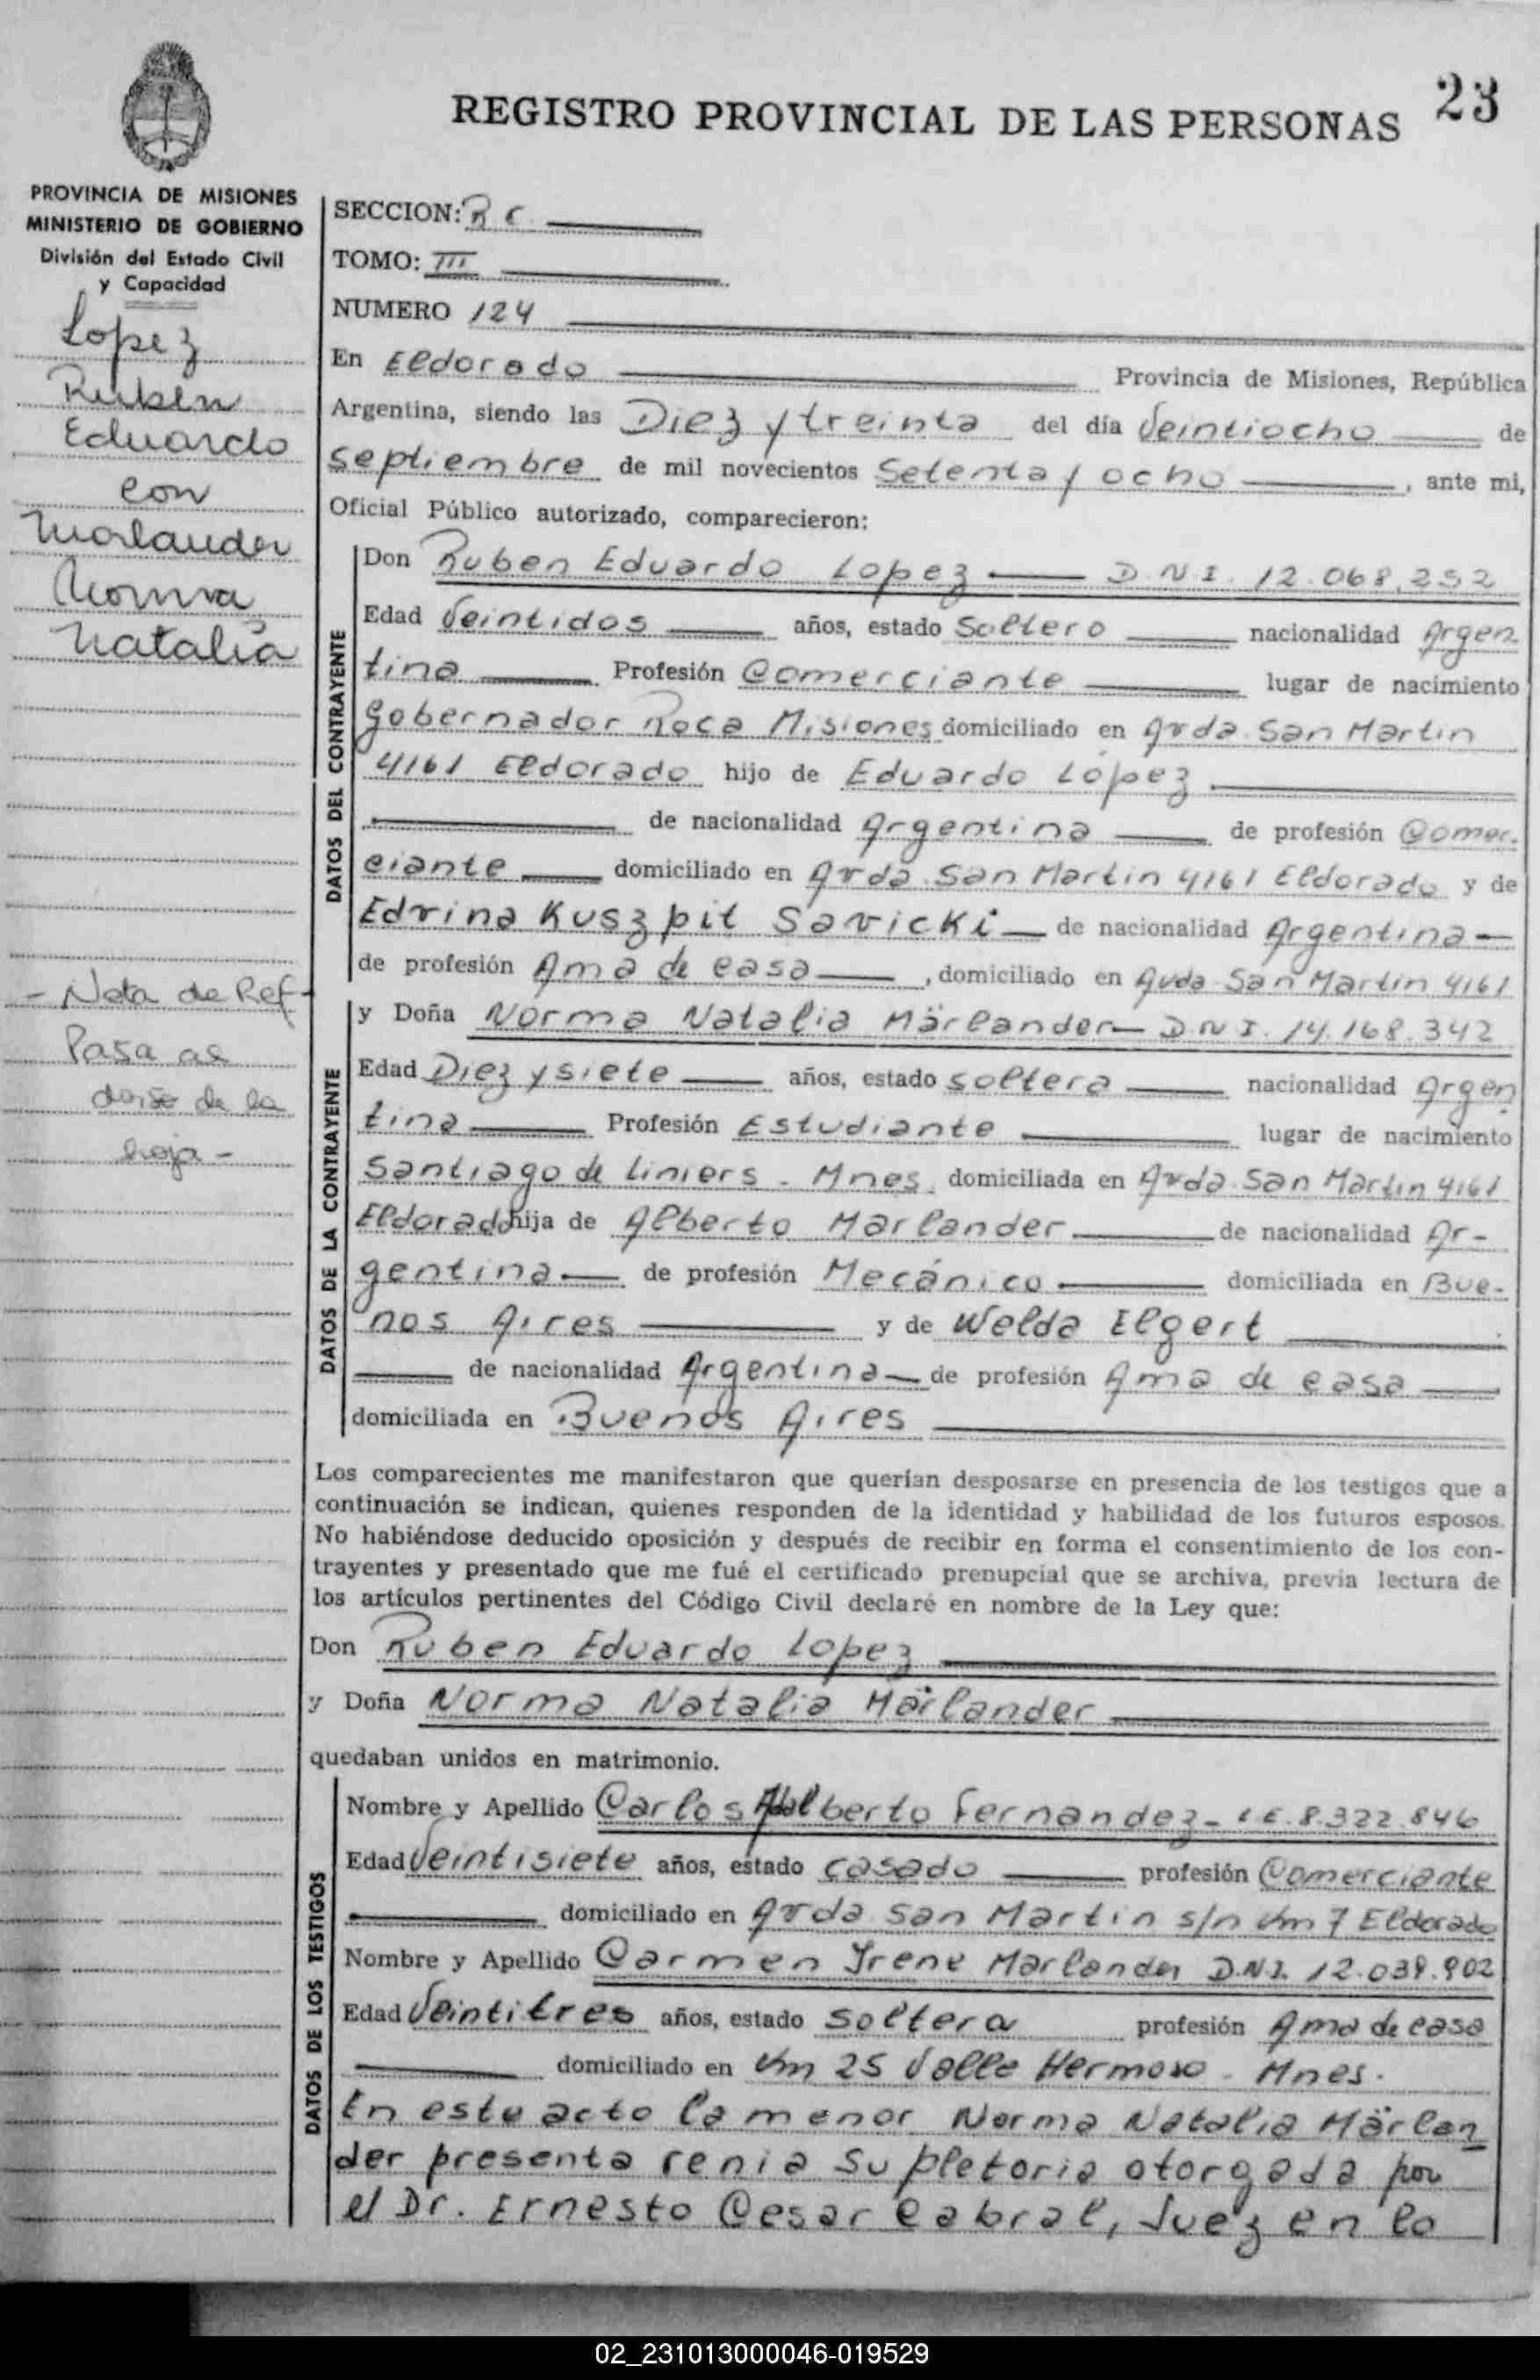 REGISTRO PROVINCIAL DE LAS PERSONAS
23
PROVINCIA DE MISIONES
MINISTERIO DE GOBIERNO
División del Estado Civil
y Capacidad
Lopez
Ruben
Eduardo
con
Marlander
Norma
Natalia
- Nota de Ref -
Pasa al
dorso de la
hoja -
SECCION: R C
TOMO: III
NUMERO 124
En Eldorado Provincia de Misiones, República
Argentina, siendo las Diez y treinta del día Veintiocho de
septiembre de mil novecientos Setenta y ocho, ante mi,
Oficial Público autorizado, comparecieron:
DATOS DEL CONTRAYENTE
Don Ruben Eduardo Lopez — D.N.I. 12.068.252
Edad Veintidos años, estado Soltero nacionalidad Argen
tina Profesión Comerciante lugar de nacimiento
Gobernador Roca Misiones domiciliado en Avda San Martin
4161 Eldorado hijo de Eduardo López
de nacionalidad Argentina de profesión Comer.
ciante domiciliado en Avda San Martin 4161 Eldorado y de
Edvina Kuszpit Savicki — de nacionalidad Argentina —
de profesión Ama de casa, domiciliado en Avda San Martin 4161
DATOS DE LA CONTRAYENTE
y Doña Norma Natalia Märlander — D.N.I. 14.168.342
Edad Diez y siete años, estado soltera nacionalidad Argen
tina Profesión Estudiante lugar de nacimiento
Santiago de Liniers - Mnes. domiciliada en Avda San Martin 4161
Eldorado hija de Alberto Marlander de nacionalidad Ar-
gentina de profesión Mecánico domiciliada en Bue-
nos Aires y de Welda Elgert
de nacionalidad Argentina de profesión Ama de casa
domiciliada en Buenos Aires
Los comparecientes me manifestaron que querían desposarse en presencia de los testigos que a
continuación se indican, quienes responden de la identidad y habilidad de los futuros esposos.
No habiéndose deducido oposición y después de recibir en forma el consentimiento de los con-
trayentes y presentado que me fué el certificado prenupcial que se archiva, previa lectura de
los artículos pertinentes del Código Civil declaré en nombre de la Ley que:
Don Ruben Eduardo Lopez
y Doña Norma Natalia Märlander
quedaban unidos en matrimonio.
DATOS DE LOS TESTIGOS
Nombre y Apellido Carlos Alberto Fernandez - L.E. 8.322.846
Edad Veintisiete años, estado casado profesión Comerciante
domiciliado en Avda San Martin s/n Km 7 Eldorado
Nombre y Apellido Carmen Irene Marlander D.N.I. 12.039.902
Edad Veintitres años, estado soltera profesión Ama de casa
domiciliado en Km 25 Valle Hermoso - Mnes.
En este acto la menor Norma Natalia Märlan
der presenta venia supletoria otorgada por
el Dr. Ernesto Cesar Cabral, Juez en lo
02_231013000046-019529